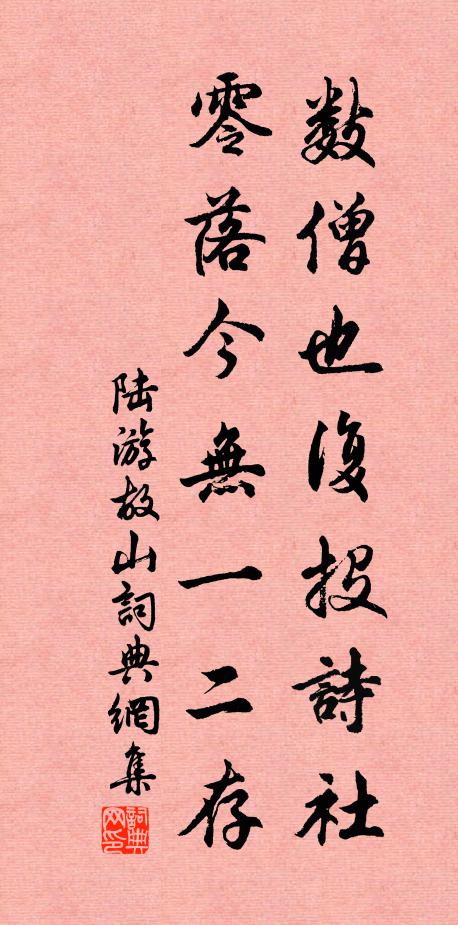 数僧也復投詩社
零落今無一二存
陆游故山詞典網集
詞典網印